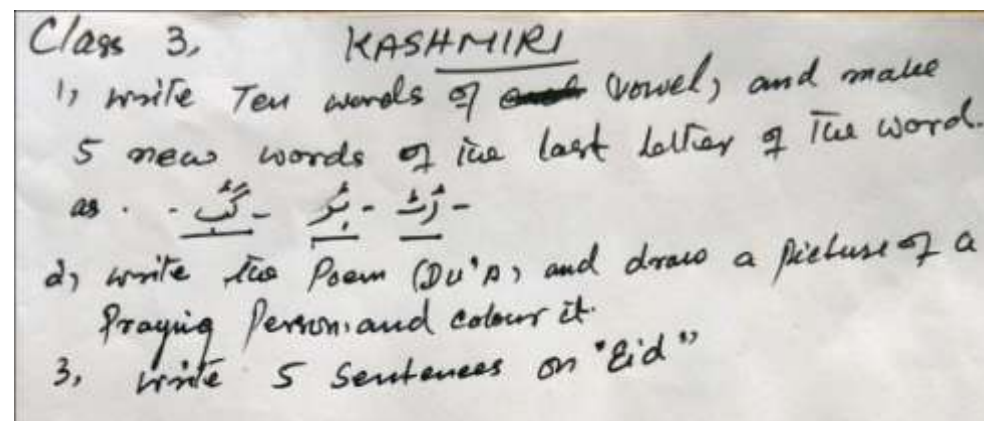 Class 3, KASHMIRI
1, write Ten words of vowel, and make
5 new words of the last letter of the word.
as . . گٔب - بٔر - رٔٹ -
2, write the Poem (Du'A, and draw a picture of a
Praying Person, and colour it.
3, write 5 Sentences on "Eid"